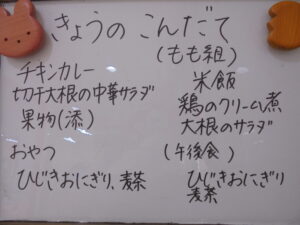 きょうの こんだて
チキンカレー
切干大根の中華サラダ
果物(添)
おやつ
ひじきおにぎり、麦茶
(もも組)
米飯
鶏のクリーム煮
大根のサラダ
(午後食)
ひじきおにぎり
麦茶